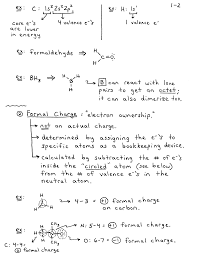 1-2
ex: C: 1s²2s²2p² ex: H: 1s¹
core e⁻'s are lower in energy 4 valence e⁻'s 1 valence e⁻
ex: formaldehyde ⇒ H C=O H
ex: BH₃ ⇒ H B H H
→ B can react with lone
pairs to get an octet;
it can also dimerize too.
② Formal Charge: "electron ownership."
→ not an actual charge.
→ determined by assigning the e⁻'s to
specific atoms as a bookkeeping device.
→ calculated by subtracting the # of e⁻'s
inside the "circled" atom (see below)
from the # of valence e⁻'s in the
neutral atom.
ex: → 4-3 = +1 formal charge
on carbon.
ex: CH₃ → N: 5-4 = +1 formal charge.
→ O: 6-7 = -1 formal charge.
CH₃
C: 4-4:
formal charge